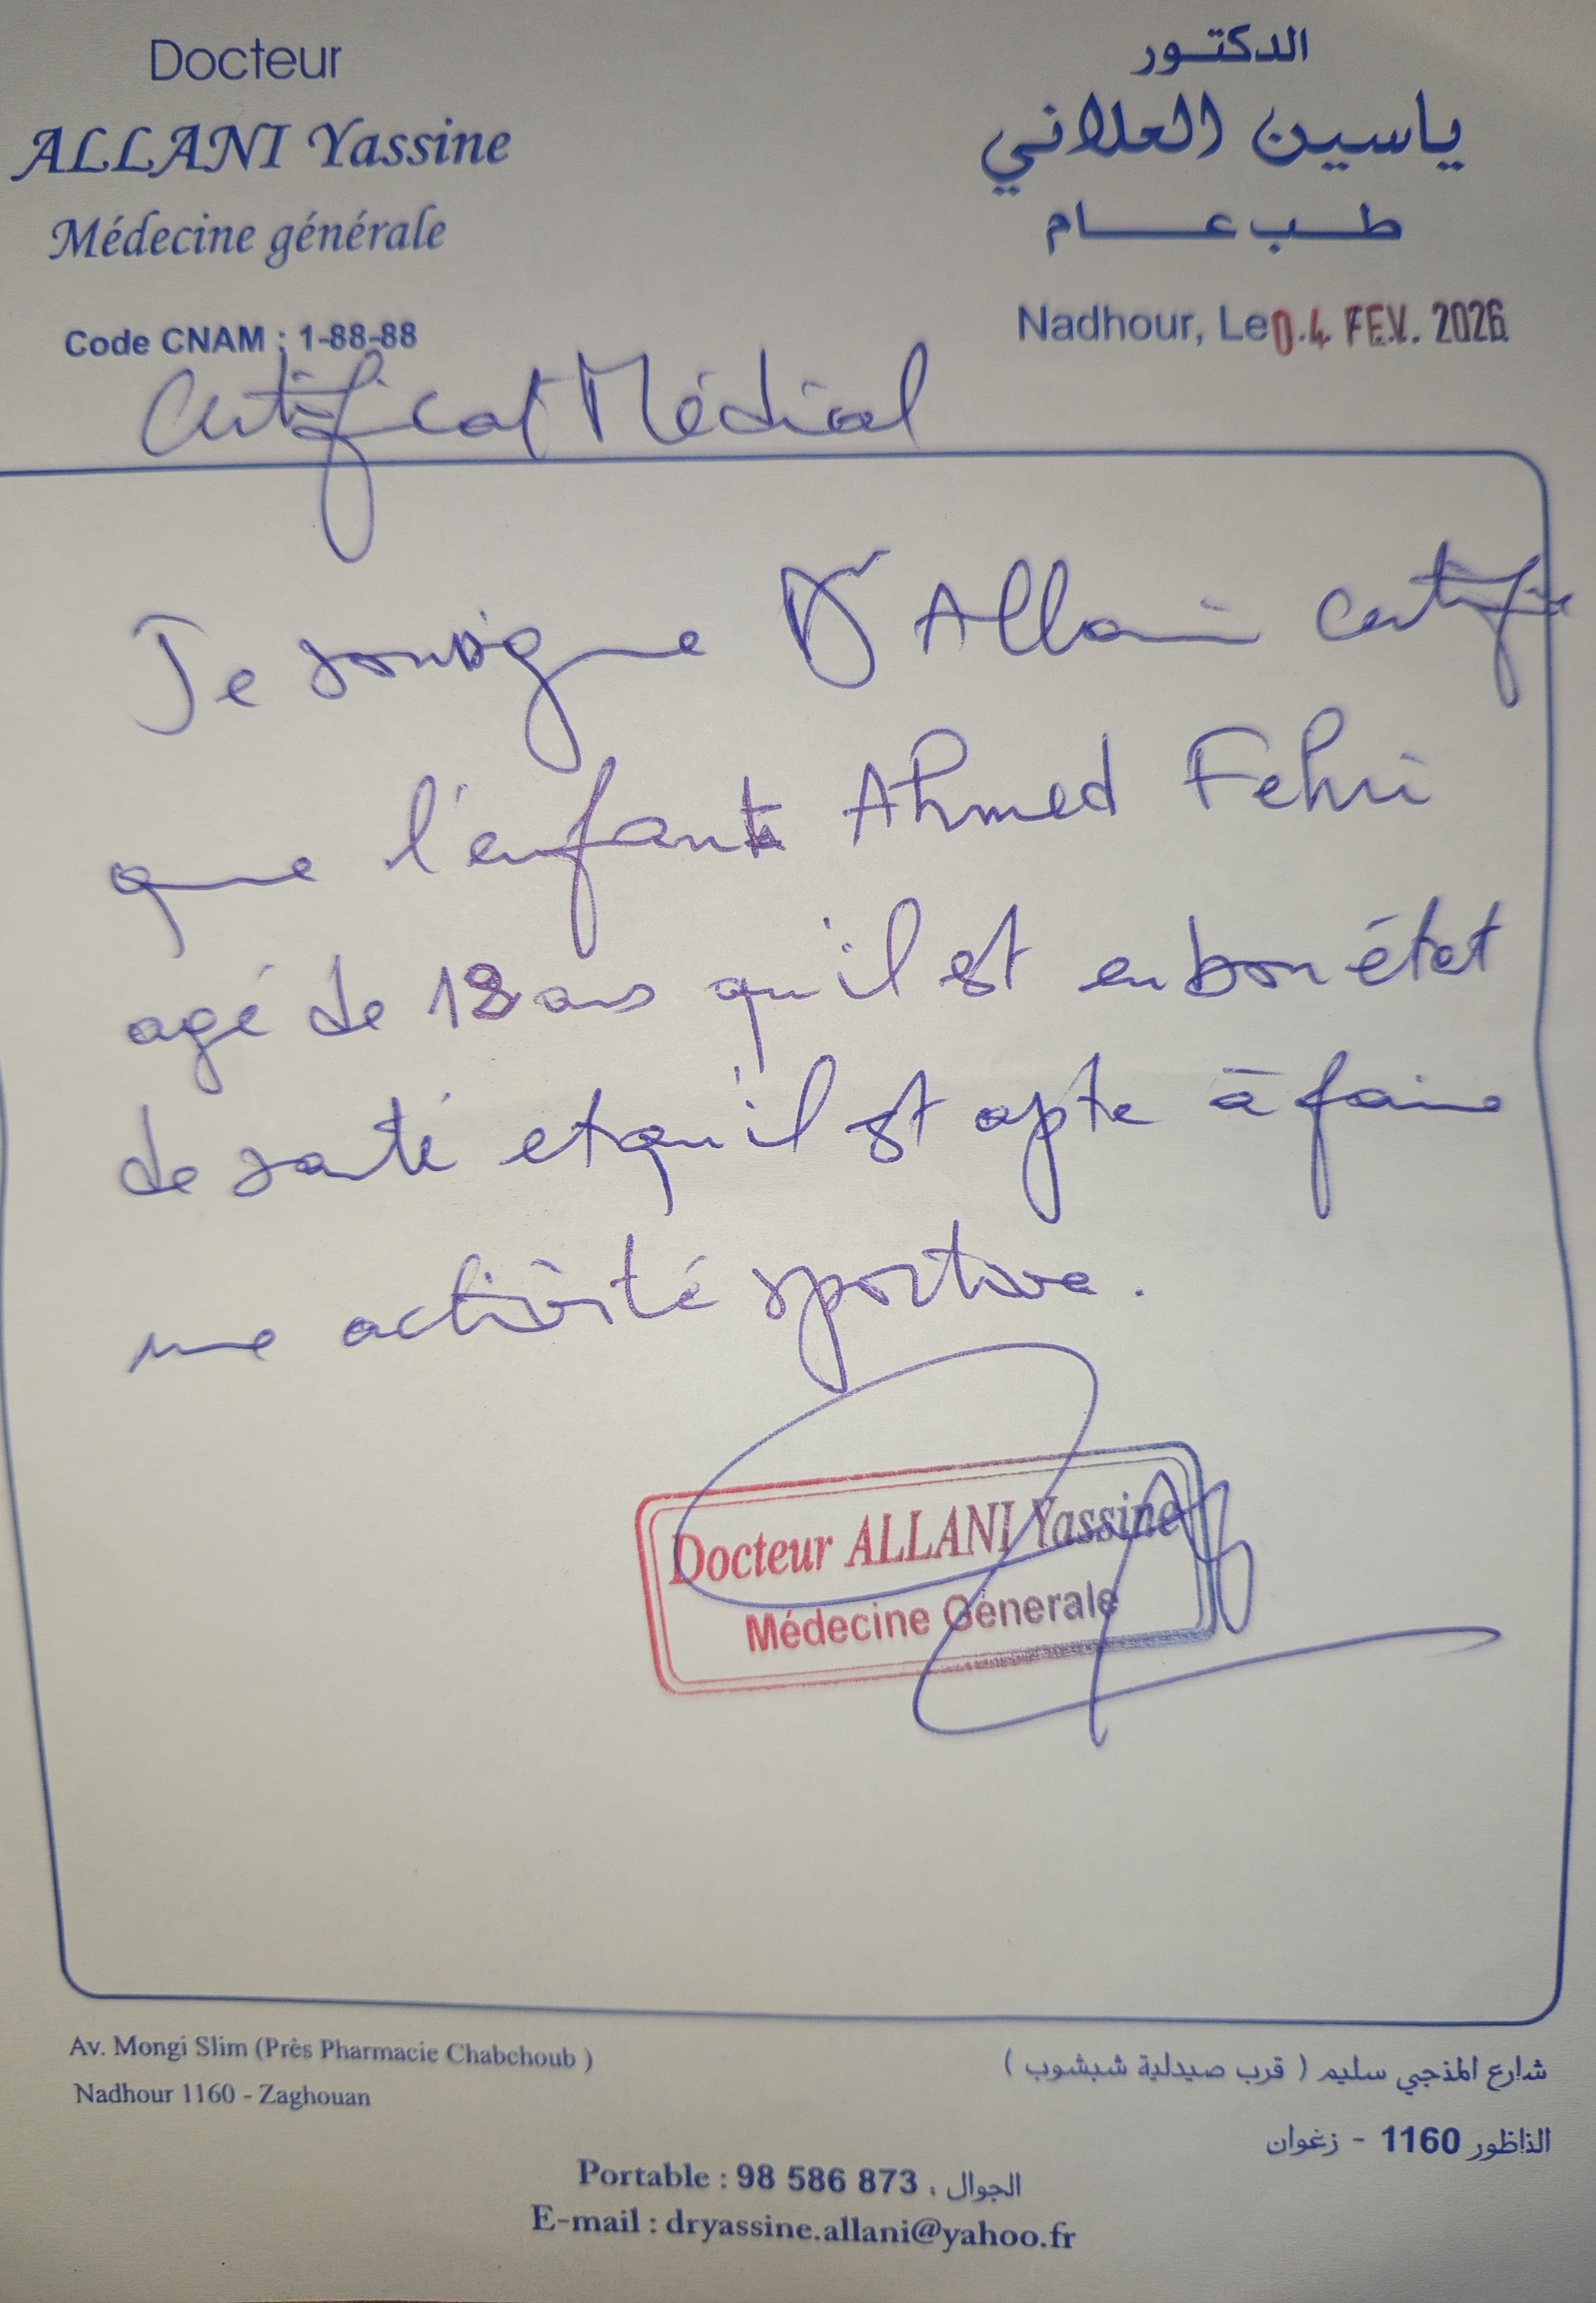 Docteur
ALLANI Yassine
Médecine générale
Code CNAM : 1-88-88
الدكتور
ياسين العلاني
طب عام
Nadhour, Le 04 FEV. 2026
Certificat Médical
Je soussigne Dr Allani certifie
que l'enfant Ahmed Fehri
agé de ans qu'il est en bon état
de santé et qu'il est apte à faire
une activité sportive.
Docteur ALLANI Yassine
Médecine Génerale
Av. Mongi Slim (Près Pharmacie Chabchoub )
Nadhour 1160 - Zaghouan
شارع المنجي سليم ( قرب صيدلية شبشوب )
الناظور 1160 - زغوان
Portable : 98 586 873 : الجوال
E-mail : dryassine.allani@yahoo.fr